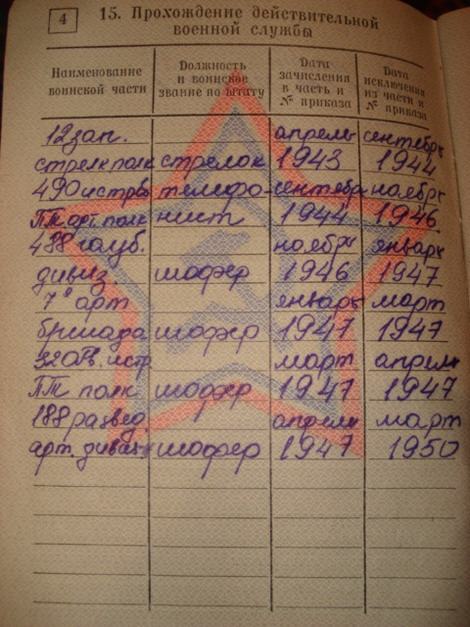 4
15. Прохождение действительной
военной службы
Наименование воинской части
Должность и воинское звание по штату
Дата зачисления в часть и № приказа
Дата исключения из части и № приказа
12 зап. апрель сентябрь
стрелк полк стрелок 1943 1944
490 истреб телефо- сентябрь ноябрь
ПТ арт полк нист 1944 1946
488 гауб. ноябрь январь
дивиз. шофер 1946 1947
7ᵃ арт январь март
бригада шофер 1947 1947
320 истр март апрель
ПТ полк шофер 1947 1947
188 развед. апрель март
арт. дивиз-н шофер 1947 1950